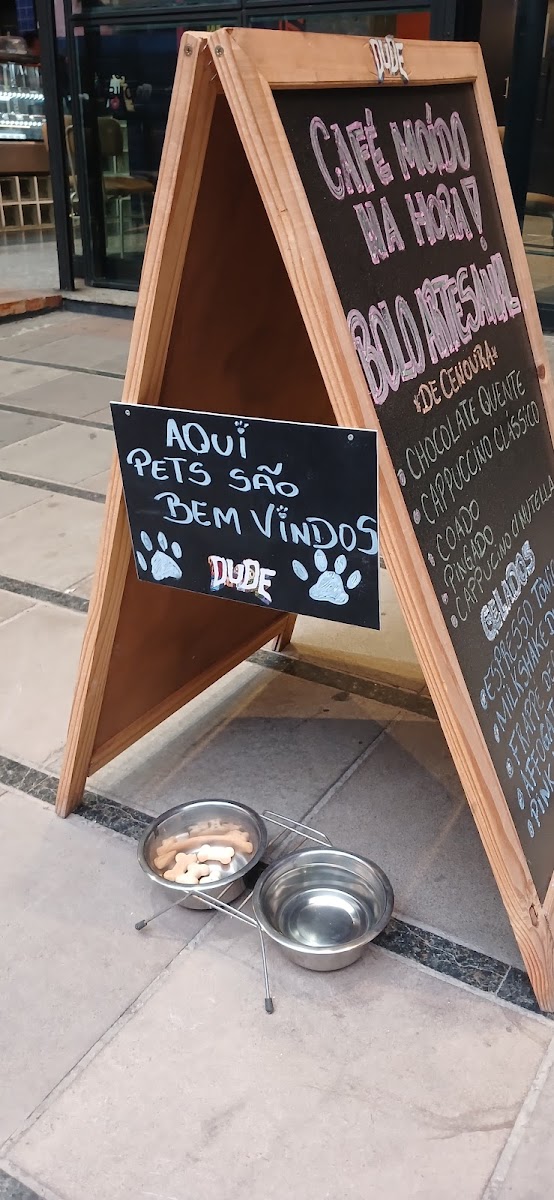 DUDE
CAFÉ MOÍDO
NA HORA!
BOLO ARTESANAL
*DE CENOURA*
CHOCOLATE QUENTE
CAPPUCCINO CLÁSSICO
COADO
PINGADO
CAPPUCINO C/NUTELLA
GELADOS
ESPRESSO
MILKSHAKE
FRAPÊ
AQUI
PETS SÃO
BEM VINDOS
DUDE